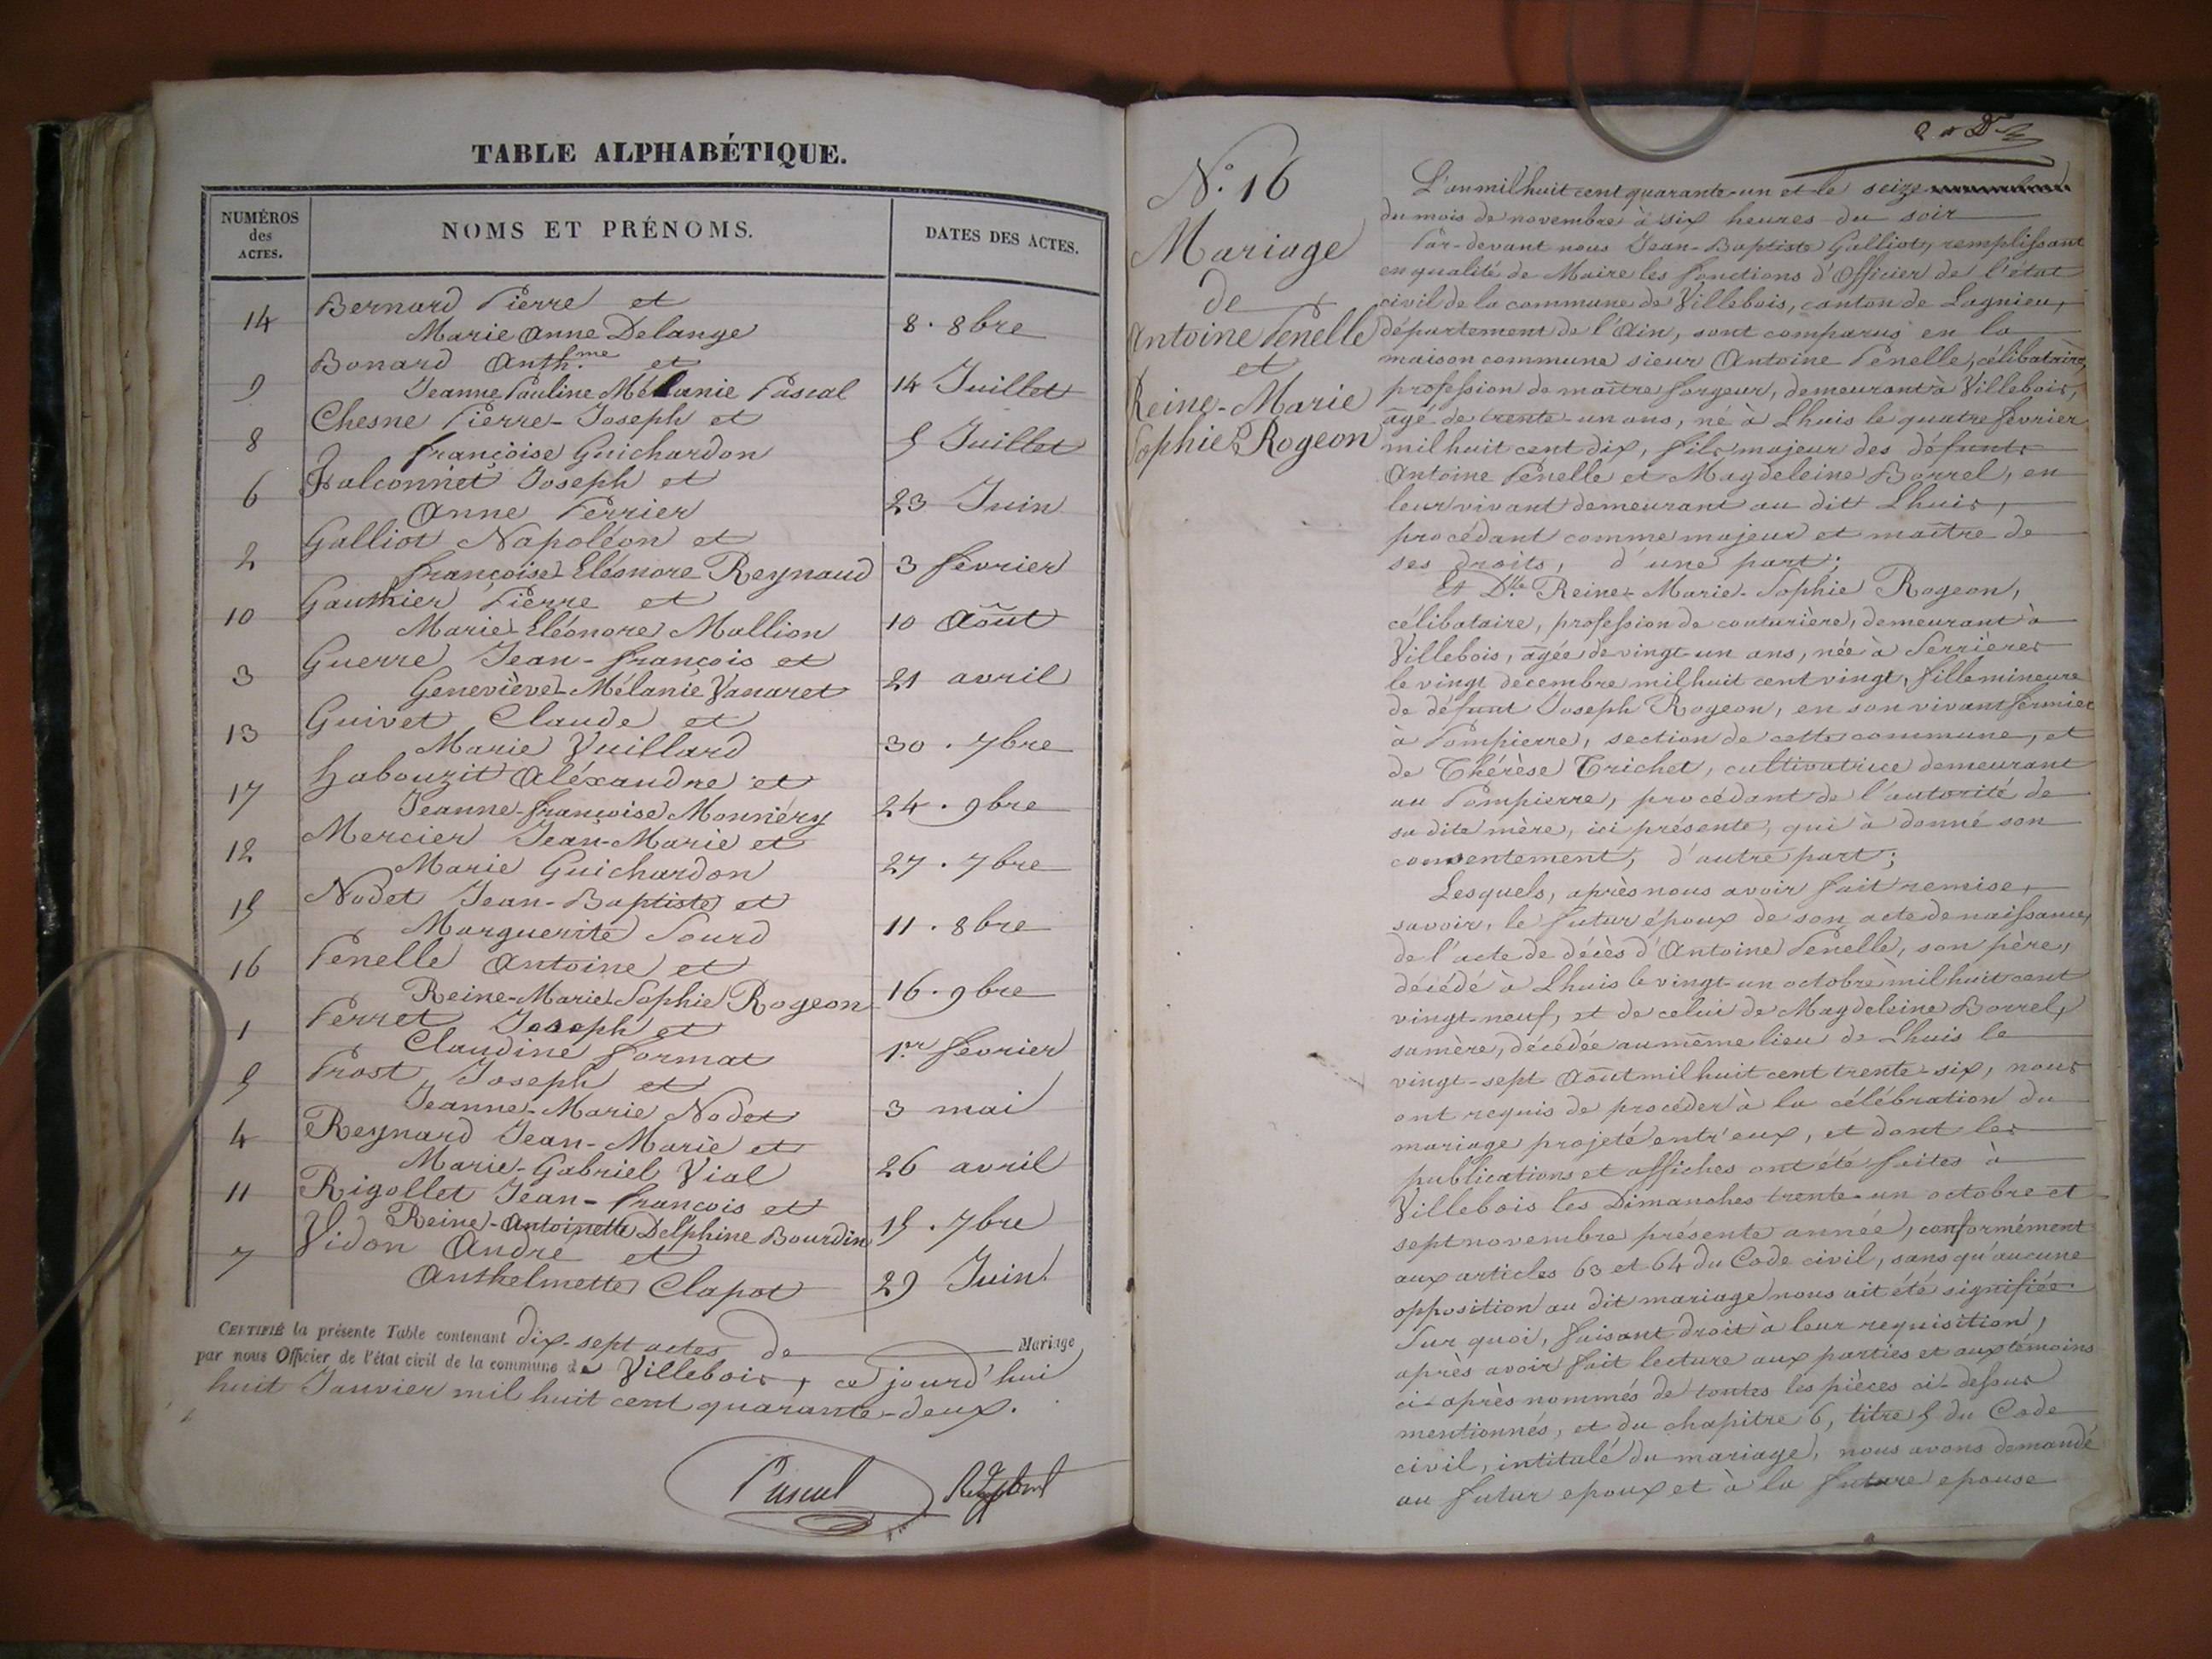 TABLE ALPHABÉTIQUE.
NUMÉROS des ACTES.
NOMS ET PRÉNOMS.
DATES DES ACTES.
Bernard Pierre et
14 Marie Anne Delange 8. 8bre
Bonard Anth.me et
9 Jeanne Pauline Mélanie Pascal 14 Juillet
Chesne Pierre-Joseph et
8 françoise Guichardon 5 Juillet
Falconnet Joseph et
6 Anne Perrier 23 Juin
Galliot Napoléon et
2 françoise Eléonore Reynaud 3 février
Gauthier Pierre et
10 Marie Eléonore Mallion 10 Août
Guerre Jean-françois et
3 Geneviève-Mélanie Vanaret 21 avril
Guivet Claude et
13 Marie Vuillard 30. 7bre
Habouzit Aléxandre et
17 Jeanne-françoise Monnéry 24. 9bre
Mercier Jean-Marie et
12 Marie Guichardon 27. 7bre
Nodet Jean-Baptiste et
15 Marguerite Sourd 11. 8bre
Penelle Antoine et
16 Reine-Marie-Sophie Rogeon 16. 9bre
Perret Joseph et
1 Claudine format 1er février
Prost Joseph et
5 Jeanne-Marie Nodet 3 mai
Reynard Jean-Marie et
4 Marie-Gabriel Vial 26 avril
Rigollet Jean-françois et
11 Reine-Antoinette Delphine Bourdin 15. 7bre
Vidon André et
7 Anthelmette Clapot 29 Juin.
CERTIFIÉ la présente Table contenant dix-sept actes de Mariage
par nous Officier de l'état civil de la commune de Villebois, ce jourd'hui
huit Janvier mil huit cent quarante-deux.
Pascal
N.o 16
Mariage
de
Antoine Penelle
et
Reine-Marie
Sophie Rogeon
L'an mil huit cent quarante-un et le seize
du mois de novembre à six heures du soir
Par-devant nous Jean-Baptiste Galliot, remplissant
en qualité de Maire les fonctions d'Officier de l'état
civil de la commune de Villebois, canton de Lagnieu,
département de l'Ain, sont comparus en la
maison commune sieur Antoine Penelle, célibataire,
profession de maître forgeur, demeurant à Villebois,
âgé de trente-un ans, né à Lhuis le quatre février
mil huit cent dix, fils majeur des défunts
Antoine Penelle et Magdeleine Borrel, en
leur vivant demeurant au dit Lhuis,
procédant comme majeur et maître de
ses droits, d'une part;
Et D.lle Reine-Marie-Sophie Rogeon,
célibataire, profession de couturière, demeurant à
Villebois, âgée de vingt-un ans, née à Serrières
le vingt décembre mil huit cent vingt, fille mineure
de défunt Joseph Rogeon, en son vivant fermier
à Pompierre, section de cette commune, et
de Thérèse Trichet, cultivatrice demeurant
au Pompierre, procédant de l'autorité de
sa dite mère, ici présente, qui à donné son
consentement, d'autre part;
Lesquels, après nous avoir fait remise,
savoir, le futur époux de son acte de naissance,
de l'acte de décès d'Antoine Penelle, son père,
décédé à Lhuis le vingt-un octobre mil huit cent
vingt-neuf, et de celui de Magdeleine Borrel,
sa mère, décédée au même lieu de Lhuis le
vingt-sept Août mil huit cent trente-six, nous
ont requis de procéder à la célébration du
mariage projeté entr'eux, et dont les
publications et affiches ont été faites à
Villebois les Dimanches trente-un octobre et
sept novembre présente année, conformément
aux articles 63 et 64 du Code civil, sans qu'aucune
opposition au dit mariage nous ait été signifiée
Sur quoi, faisant droit à leur requisition,
après avoir fait lecture aux parties et aux témoins
ci-après nommés de toutes les pièces ci-dessus
mentionnés, et du chapitre 6, titre 5 du Code
civil, intitulé du mariage, nous avons demandé
au futur epoux et à la future epouse